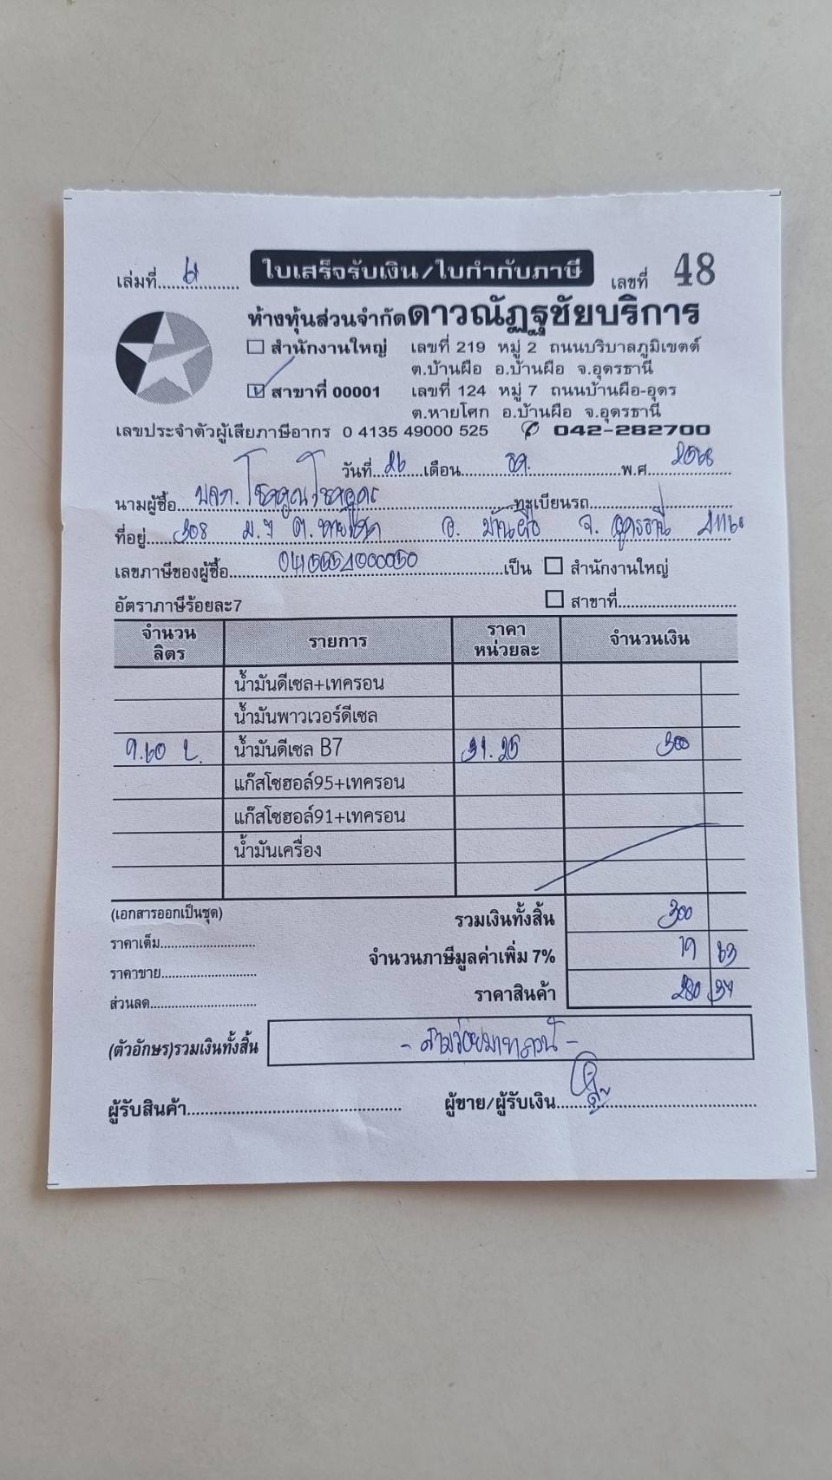 เล่มที่........ ใบเสร็จรับเงิน/ใบกำกับภาษี เลขที่ 48
ห้างหุ้นส่วนจำกัดดาวณัฏฐชัยบริการ
สำนักงานใหญ่ เลขที่ 219 หมู่ 2 ถนนบริบาลภูมิเขตต์
ต.บ้านผือ อ.บ้านผือ จ.อุดรธานี
สาขาที่ 00001 เลขที่ 124 หมู่ 7 ถนนบ้านผือ-อุดร
ต.หายโศก อ.บ้านผือ จ.อุดรธานี
เลขประจำตัวผู้เสียภาษีอากร 0 4135 49000 525 042-282700
วันที่ 26 เดือน พ.ศ. 2568
นามผู้ซื้อ บจก. โชคคูณโชคอุดร ทะเบียนรถ
ที่อยู่ 308 ม.7 ต.หายโศก อ. บ้านผือ จ. อุดรธานี 41160
เลขภาษีของผู้ซื้อ เป็น สำนักงานใหญ่
อัตราภาษีร้อยละ7 สาขาที่
จำนวนลิตร รายการ ราคาหน่วยละ จำนวนเงิน
น้ำมันดีเซล+เทครอน
น้ำมันพาวเวอร์ดีเซล
9.60 ล. น้ำมันดีเซล B7 31.25 300
แก๊สโซฮอล์95+เทครอน
แก๊สโซฮอล์91+เทครอน
น้ำมันเครื่อง
(เอกสารออกเป็นชุด) รวมเงินทั้งสิ้น 300
ราคาเต็ม
จำนวนภาษีมูลค่าเพิ่ม 7% 19 63
ราคาขาย
ราคาสินค้า 280 37
ส่วนลด
(ตัวอักษร)รวมเงินทั้งสิ้น - สามร้อยบาทถ้วน -
ผู้รับสินค้า ผู้ขาย/ผู้รับเงิน